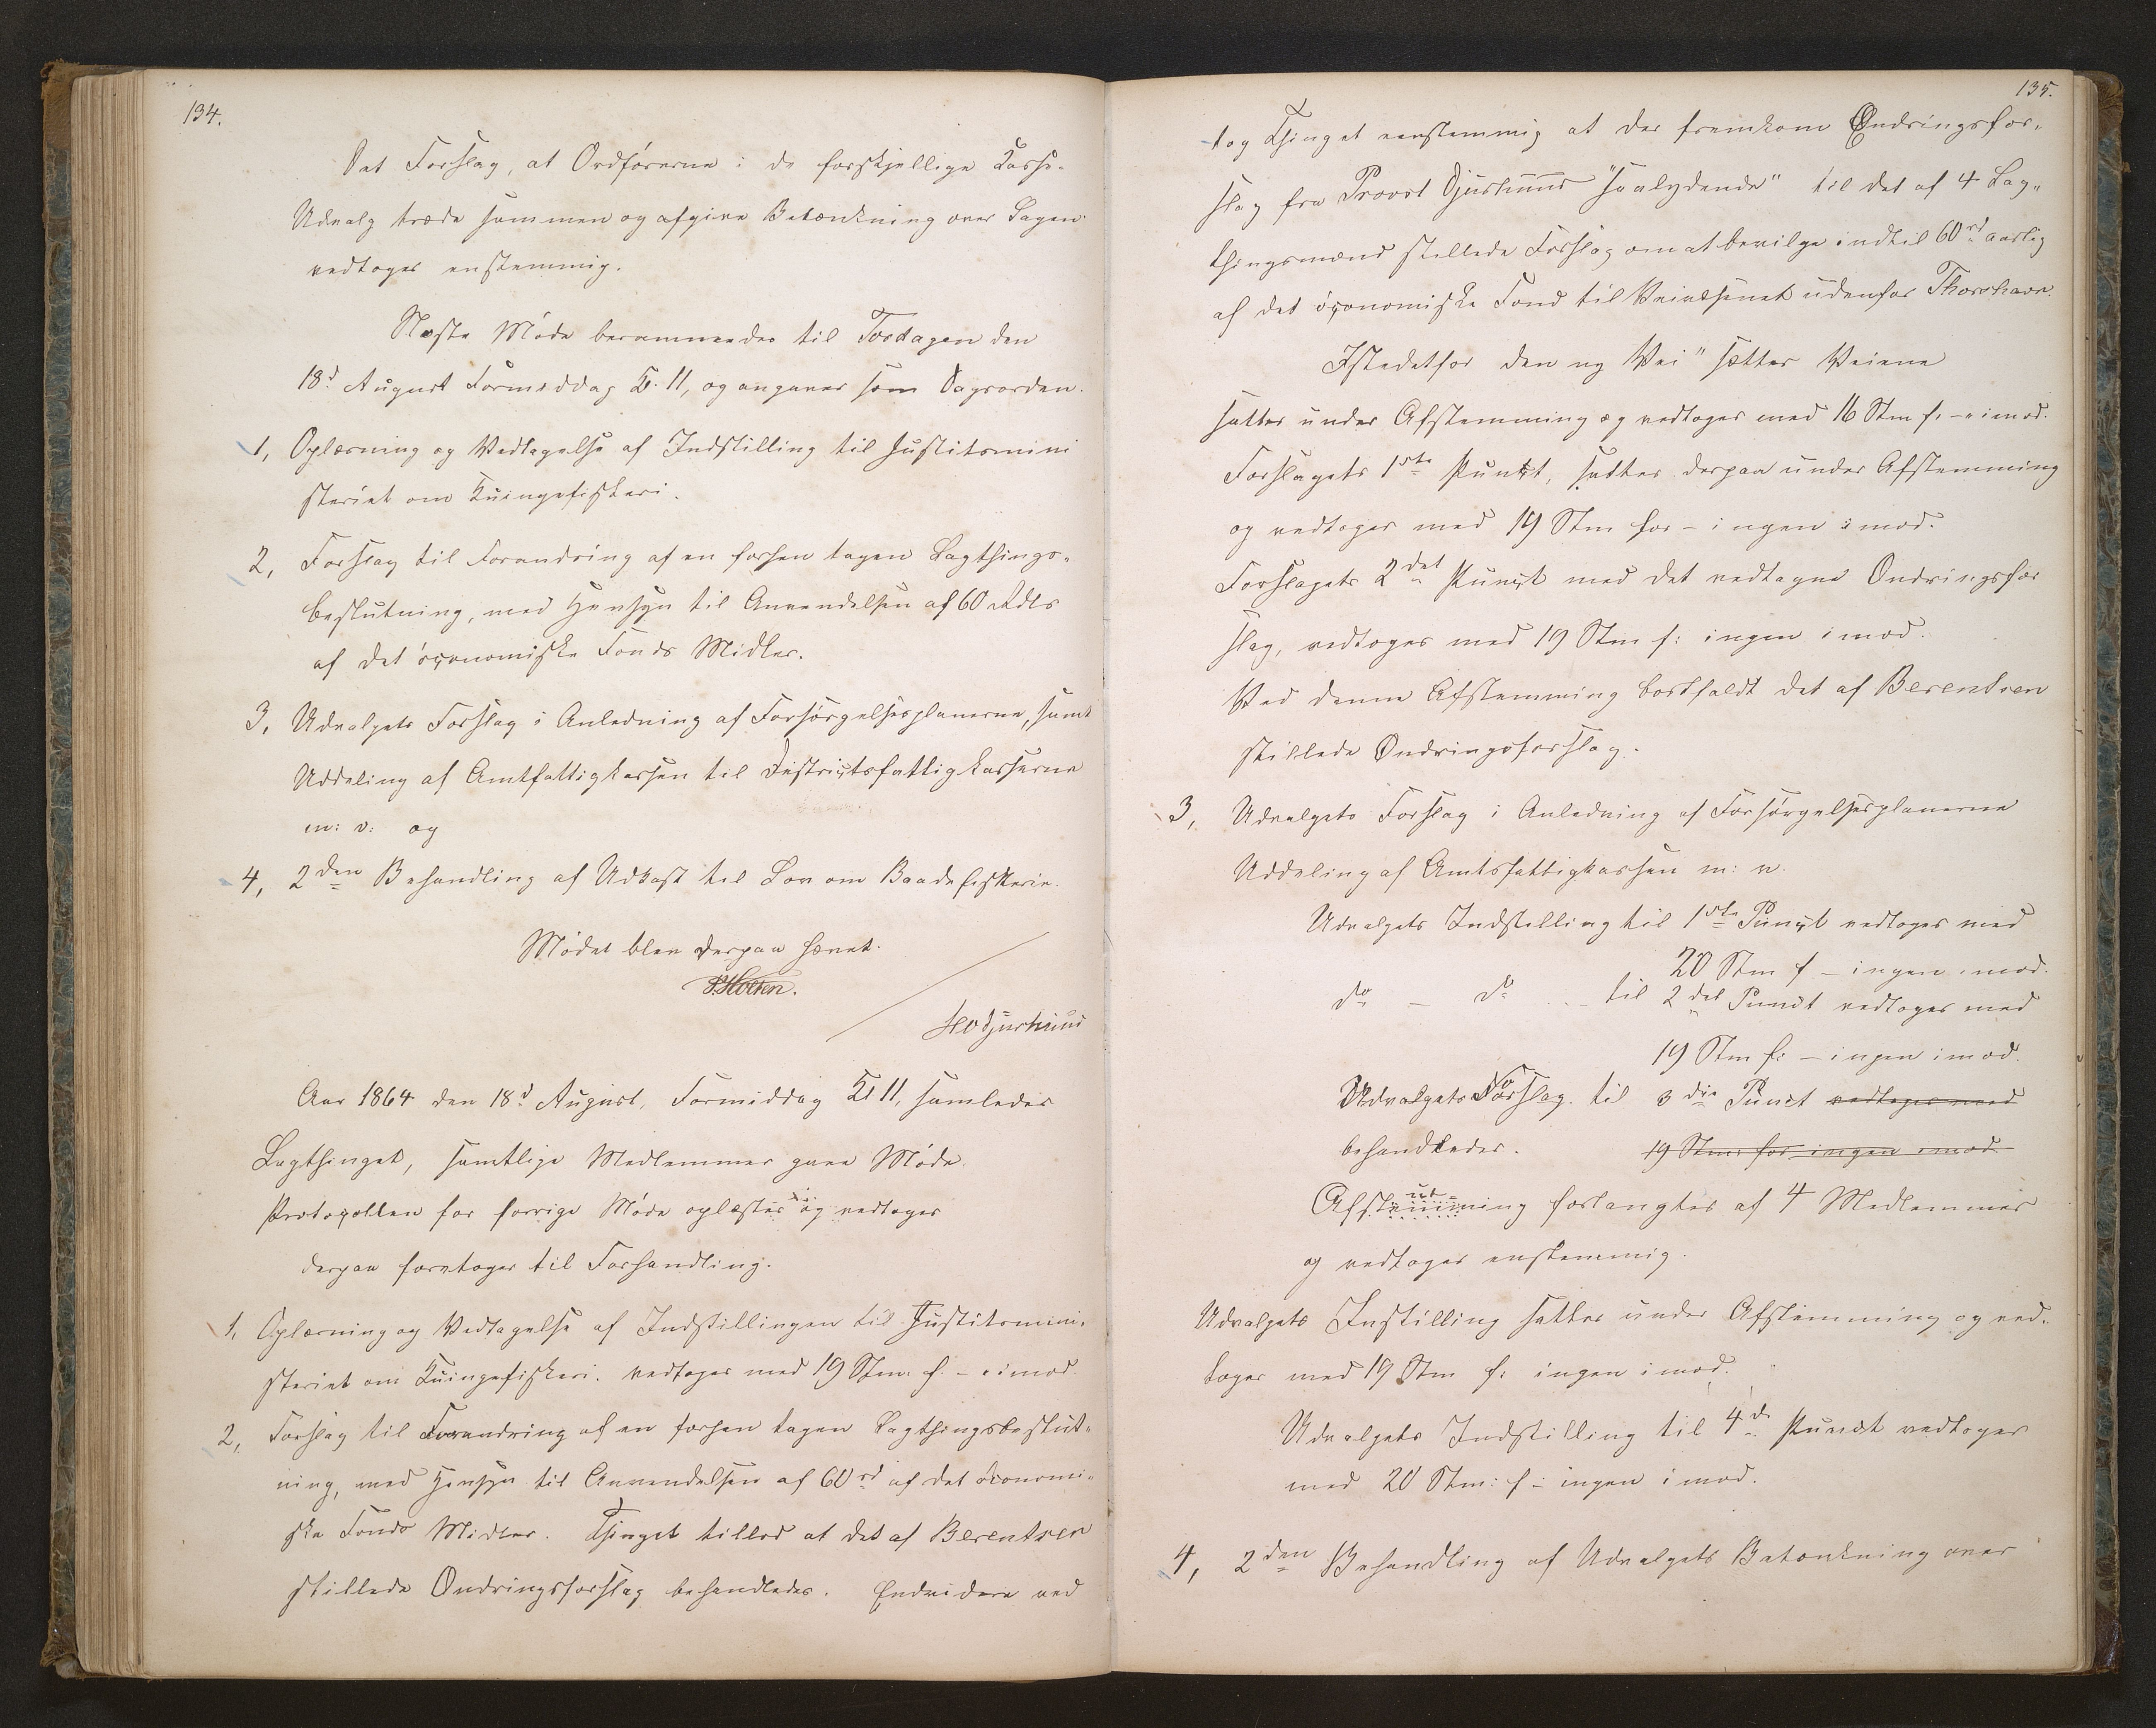 134.
Det Forslag, at Ordførerne i de forskjellige Kasse-
Udvalg træde sammen og afgive Betænkning over Sagen
vedtoges enstemmig.
Næste Møde berammedes til Torsdagen den
18d August Formiddag Kl. 11, og angaves som Dagsorden.
1, Oplæsning og Vedtagelse af Indstilling til Justitsmini
steriet om Kuingefiskeri.
2, Forslag til Forandring af en forhen tagen Lagthings-
beslutning, med Hensyn til Anvendelsen af 60 Rdlr
af det øconomiske Fonds Midler.
3, Udvalgets Forslag i Anledning af Forsørgelsesplanerne, samt
Uddeling af Amtfattigkassen til Districtsfattigkasserne
m: v: og
4, 2den Behandling af Udkast til Lov om Baadefiskerie.
Mødet blev derpaa hævet.
Holten.
HO Djurhuus
Aar 1864 den 18d August, Formiddag Kl 11, samledes
Lagthinget, samtlige Medlemmer gave Møde
Protocollen for forrige Møde oplæstes og vedtoges
derpaa foretoges til Forhandling.
1, Oplæsning og Vedtagelse af Indstillingen til Justitsmini-
steriet om Kuingefiskeri. vedtoges med 19 Stm: f. - " imod
2, Forslag til Forandring af en forhen tagen Lagthingsbeslut-
ning, med Hensyn til Anvendelsen af 60 rd af det øconomi-
ske Fonds Midler. Thinget tillod at det af Berentsen
stillede Ændringsforslag behandledes. Endvidere ved
135.
tog Thinget eenstemmig at der fremkom Ændringsfor-
slag fra Provst Djurhuus "saalydende" til det af 4 Lag-
thingsmænd stillede Forslag om at bevilge indtil 60 rd aarlig
af det øconomiske Fond til Veivæsenet udenfor Thorshavn.
Istedetfor den ny Vei" sættes Veiene
sattes under Afstemning og vedtoges med 16 Stm f. - " imod.
Forslagets 1ste Punkt, sattes derpaa under Afstemning
og vedtoges med 19 Stm for - ingen imod.
Forslagets 2det Punct med det vedtagne Ændringsfor
slag, vedtoges med 19 Stm f: ingen imod.
Ved denne Afstemning bortfaldt det af Berentsen
stillede Ændringsforslag.
3, Udvalgets Forslag i Anledning af Forsørgelsesplanerne
Uddeling af Amtsfattigkassen m: v.
Udvalgets Indstilling til 1ste Punct vedtoges med
20 Stm f - ingen imod.
do - do - til 2det Punct vedtoges med
19 Stm f: - ingen imod.
Udvalgets Forslag til 3die Punct vedtoges med
behandledes. 19 Stm: for ingen imod.
Afstemning forlangtes af 4 Medlemmer
og vedtoges enstemmig.
Udvalgets Instilling sattes under Afstemning og ved-
toges med 19 Stm f: ingen imod.
Udvalgets Indstilling til 4de Punct vedtoges
med 20 Stm: f: ingen imod.
4, 2den Behandling af Udvalgets Betænkning over